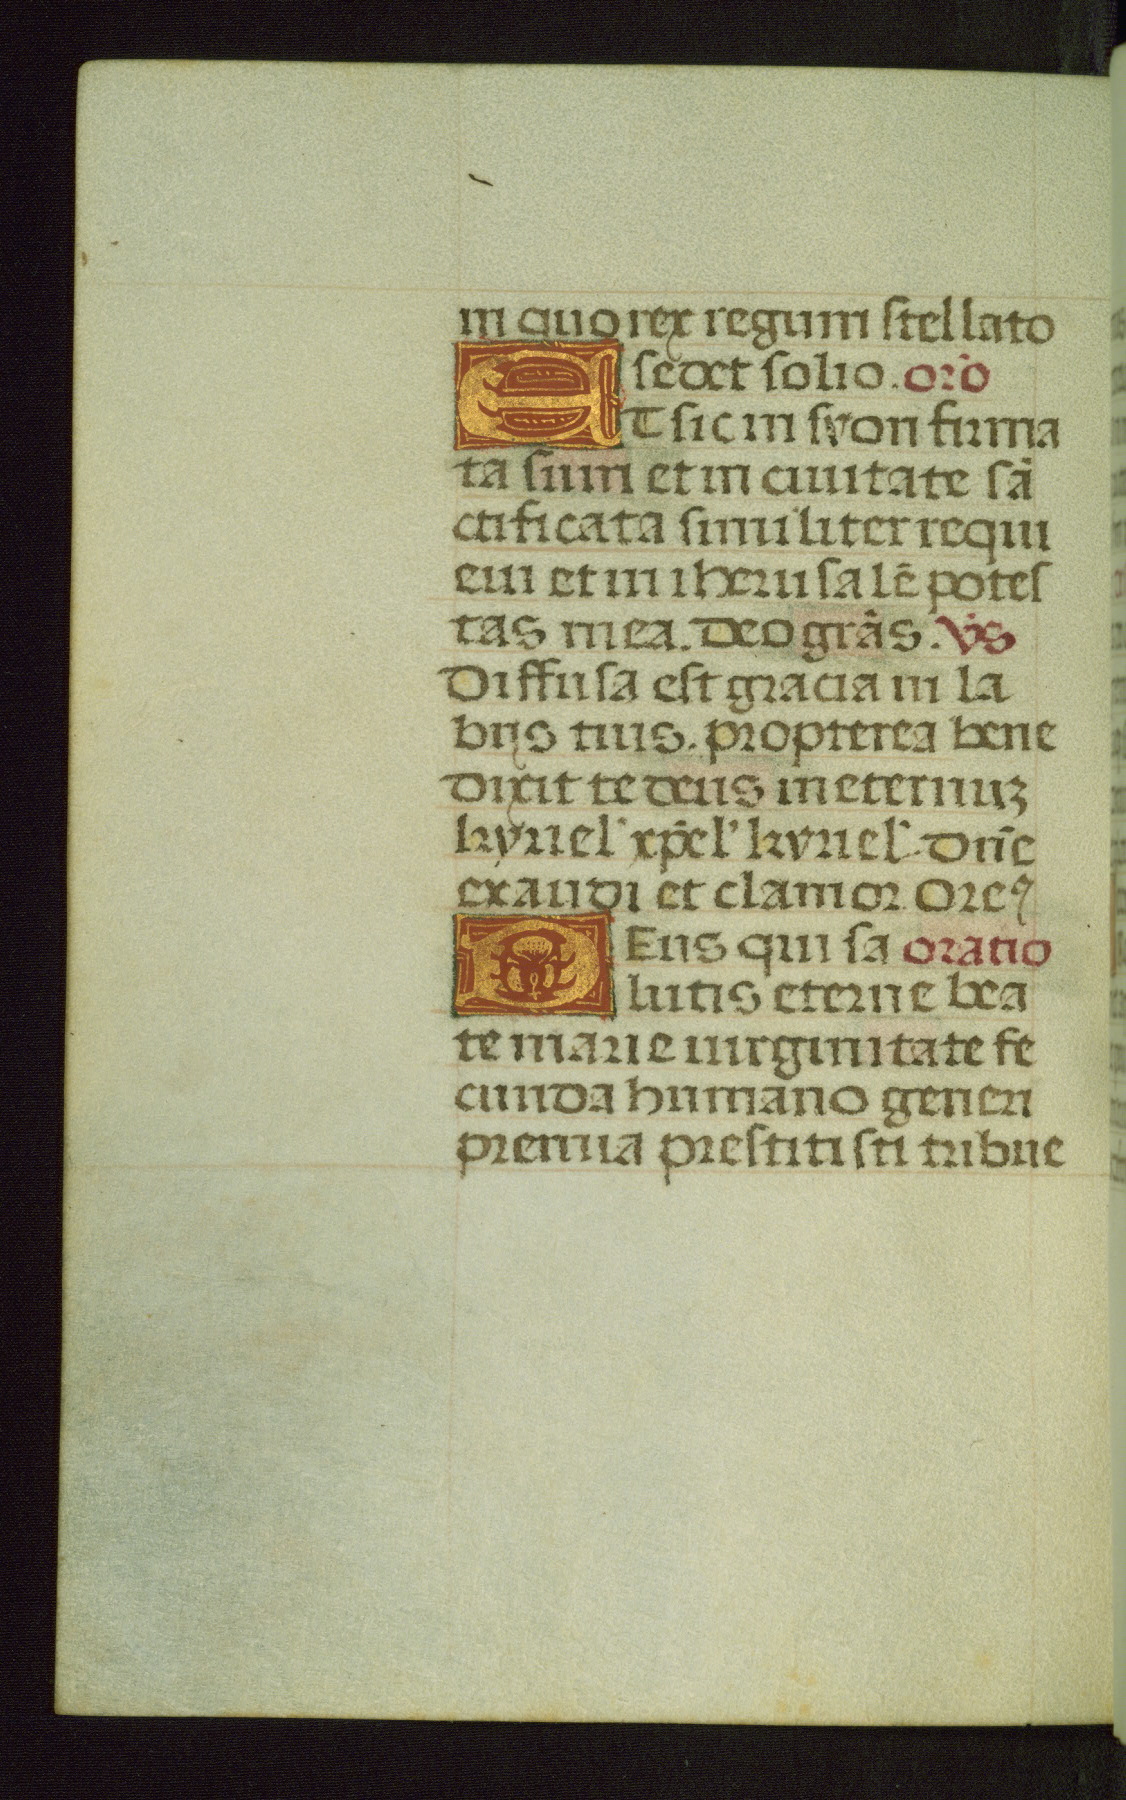 in quo rex regum stellato
sedet solio. orō
ET sic in syon firma
ta sum et in ciuitate sā
ctificata similiter requi
eui et in iherusalē potes
tas mea. Deo grās. Vs
Diffusa est gracia in la
briis tuis. propterea bene
dixit te deus in eternuʒ
kyriel' xp̄el' kyriel'. Dn̄e
exaudi et clamor Orem9
DEus qui sa oratio
lutis eterne bea
te marie uirginitate fe
cunda humano generi
premia prestitisti tribue